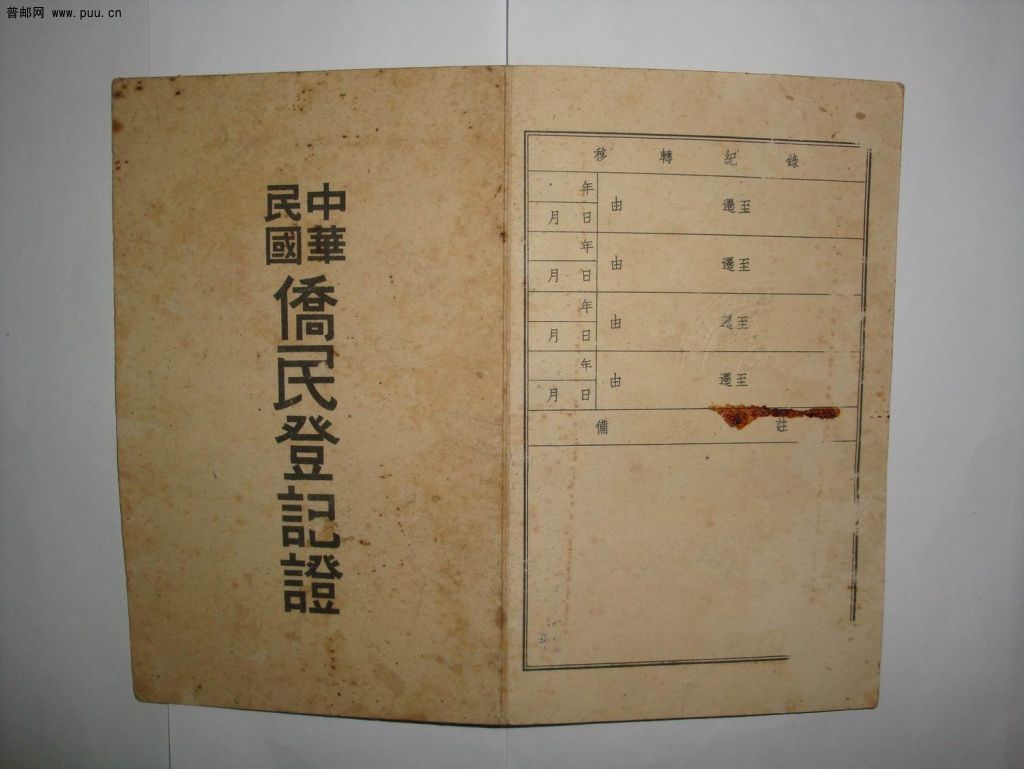 普邮网 www.puu.cn
中華
民國
僑民登記證
移轉紀錄
年
月 日
由 遷至
年
月 日
由 遷至
年
月 日
由 遷至
年
月 日
由 遷至
備註